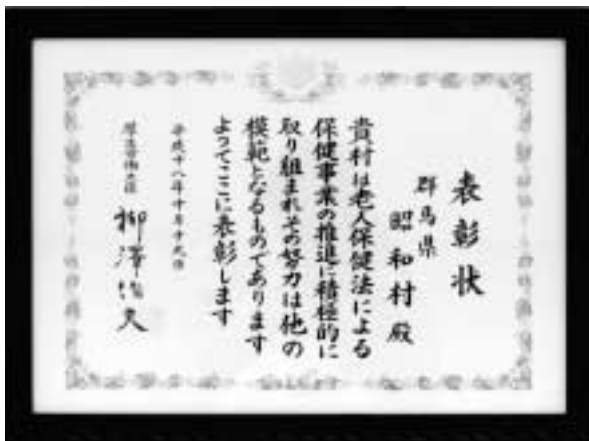 表彰状
群馬県
昭和村殿
貴村は老人保健法による
保健事業の推進に積極的に
取り組まれその努力は他の
模範となるものであります
よってここに表彰します
平成十八年十月十九日
厚生労働大臣 柳澤伯夫